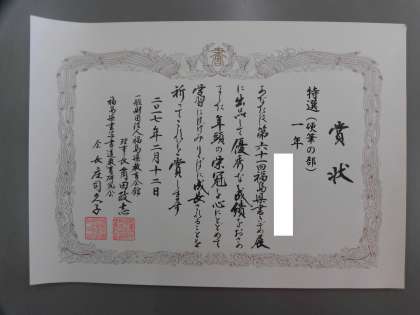 書
賞状
特選(硬筆の部)
一年
あなたは第六十一回福島県書きぞめ展
に出品して優秀な成績をおさめ
ました 年頭の栄冠を心にとめて
学習にはげみりっぱに成長されることを
祈ってこれを賞します
二〇一七年二月十二日
一般財団法人福島県教育会館
理事長 角田政志
福島県書写書道教育研究会
会長 庄司